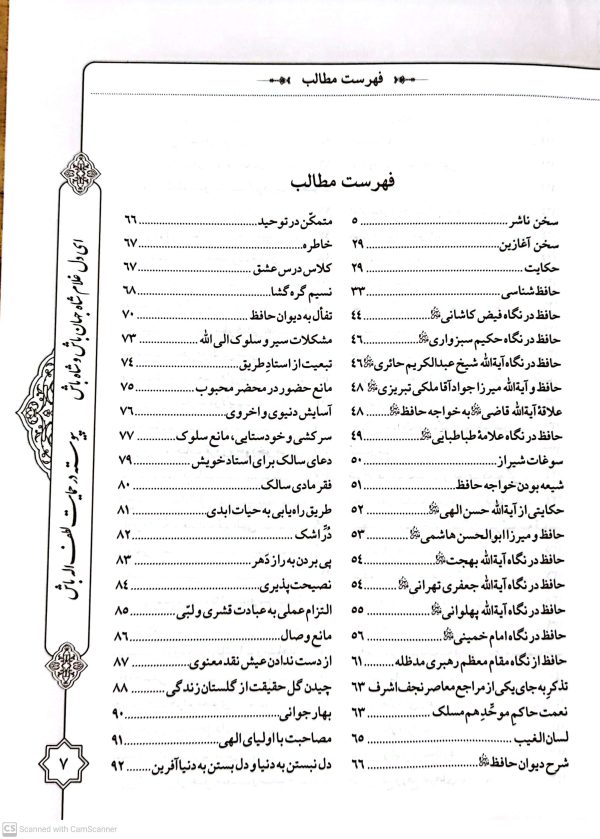 فهرست مطالب
فهرست مطالب
سخن ناشر ........ ۵
سخن آغازین ........ ۲۹
حکایت ........ ۲۹
حافظ‌شناسی ........ ۳۳
حافظ در نگاه فیض کاشانی ........ ۴۴
حافظ در نگاه حکیم سبزواری ........ ۴۶
حافظ در نگاه آیةالله شیخ عبدالکریم حائری ۴۶
حافظ و آیةالله میرزا جواد آقا ملکی تبریزی ۴۸
علاقهٔ آیةالله قاضی به خواجه حافظ ..... ۴۸
حافظ در نگاه علامهٔ طباطبایی ........ ۴۹
سوغات شیراز ........ ۵۰
شیعه بودن خواجه حافظ ........ ۵۱
حکایتی از آیةالله حسن الهی ........ ۵۲
حافظ و میرزا ابوالحسن هاشمی ........ ۵۳
حافظ در نگاه آیةالله بهجت ........ ۵۴
حافظ در نگاه آیةالله جعفری تهرانی ..... ۵۴
حافظ در نگاه آیةالله پهلوانی ........ ۵۵
حافظ در نگاه امام خمینی ........ ۵۶
حافظ از نگاه مقام معظم رهبری مدظله ........ ۶۱
تذکر به جای یکی از مراجع معاصر نجف اشرف ۶۳
نعمت حاکمِ موحّدِ هم مسلک ........ ۶۳
لسان الغیب ........ ۶۵
شرح دیوان حافظ ........ ۶۶
متمکّن در توحید ........ ۶۶
خاطره ........ ۶۷
کلاس درس عشق ........ ۶۷
نسیم گره گشا ........ ۶۸
تفأل به دیوان حافظ ........ ۷۰
مشکلات سیر و سلوک الی الله ........ ۷۳
تبعیت از استادِ طریق ........ ۷۴
مانع حضور در محضر محبوب ........ ۷۵
آسایش دنیوی و اخروی ........ ۷۶
سرکشی و خودستایی، مانع سلوک ........ ۷۷
دعای سالک برای استاد خویش ........ ۷۹
فقر مادی سالک ........ ۸۰
طریق راه‌یابی به حیات ابدی ........ ۸۱
دُرِّ اشک ........ ۸۲
پی بردن به راز دَهر ........ ۸۳
نصیحت‌پذیری ........ ۸۴
التزام عملی به عبادت قشری و لبّی ........ ۸۵
مانع وصال ........ ۸۶
از دست ندادن عیش نقد معنوی ........ ۸۷
چیدن گل حقیقت از گلستان زندگی ........ ۸۸
بهار جوانی ........ ۹۰
مصاحبت با اولیای الهی ........ ۹۱
دل نبستن به دنیا و دل بستن به دنیاآفرین ........ ۹۲
ای دل غلام شاه جهان باش و شاه باش
پیوسته در حمایت لطف اله باش
۷
CS Scanned with CamScanner